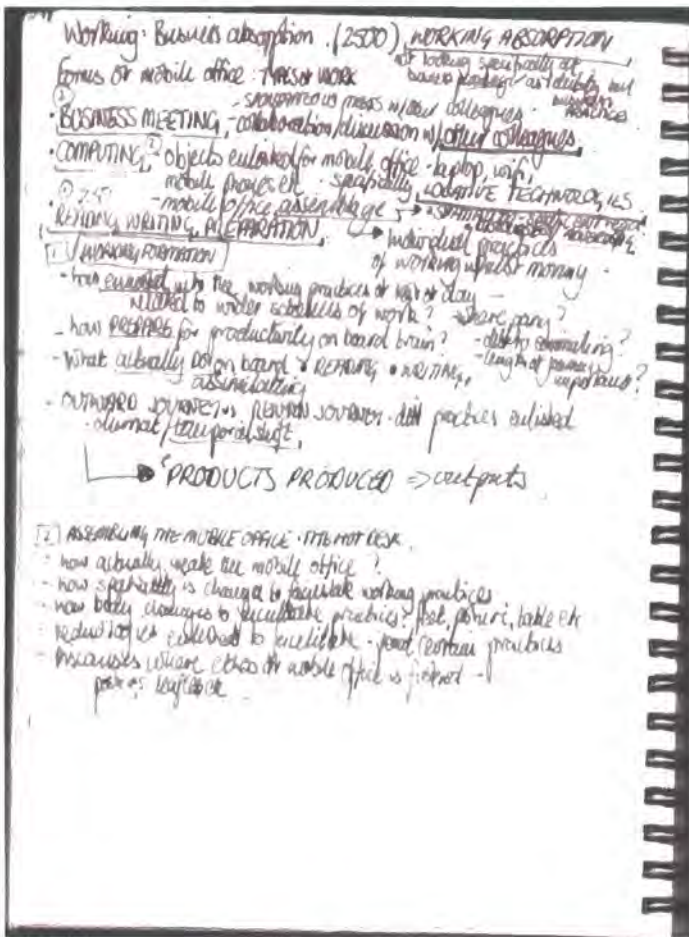 Working: Business absorption. (2500) WORKING ABSORPTION
not looking specifically at
business
PRACTICES
Forms of mobile office: TYPES OF WORK
③ - SPONTANEOUS meets w/ colleagues.
• BUSINESS MEETING, - collaboration/discussion w/ other colleagues
• COMPUTING, ② - objects enlisted for mobile office - laptop, wifi,
mobile phones etc - specifically LOCATIVE TECHNOLOGIES
- mobile office assemblage
① 2.5
• READING, WRITING, PREPARATION
individual practices
of working whilst moving.
[1] WORKING FORMATION
- how enrolled into the working practices of day -
related to wider schedules of work? - where going?
- how PREPARE for productivity on board train? - commuting?
- length of journey important?
- What actually DO on board • READING • WRITING,
assimilating
- OUTWARD JOURNEY vs RETURN JOURNEY - diff practices enlisted
• /temporal shift,
"PRODUCTS PRODUCED => outputs
[2] ASSEMBLING THE MOBILE OFFICE - THE HOT DESK
- how actually make the mobile office?
- how spatiality is changed to facilitate working practices
- how body changes to facilitate practices? posture, table etc
- technologies enlisted to facilitate - certain practices
- Instances where ethos of mobile office is